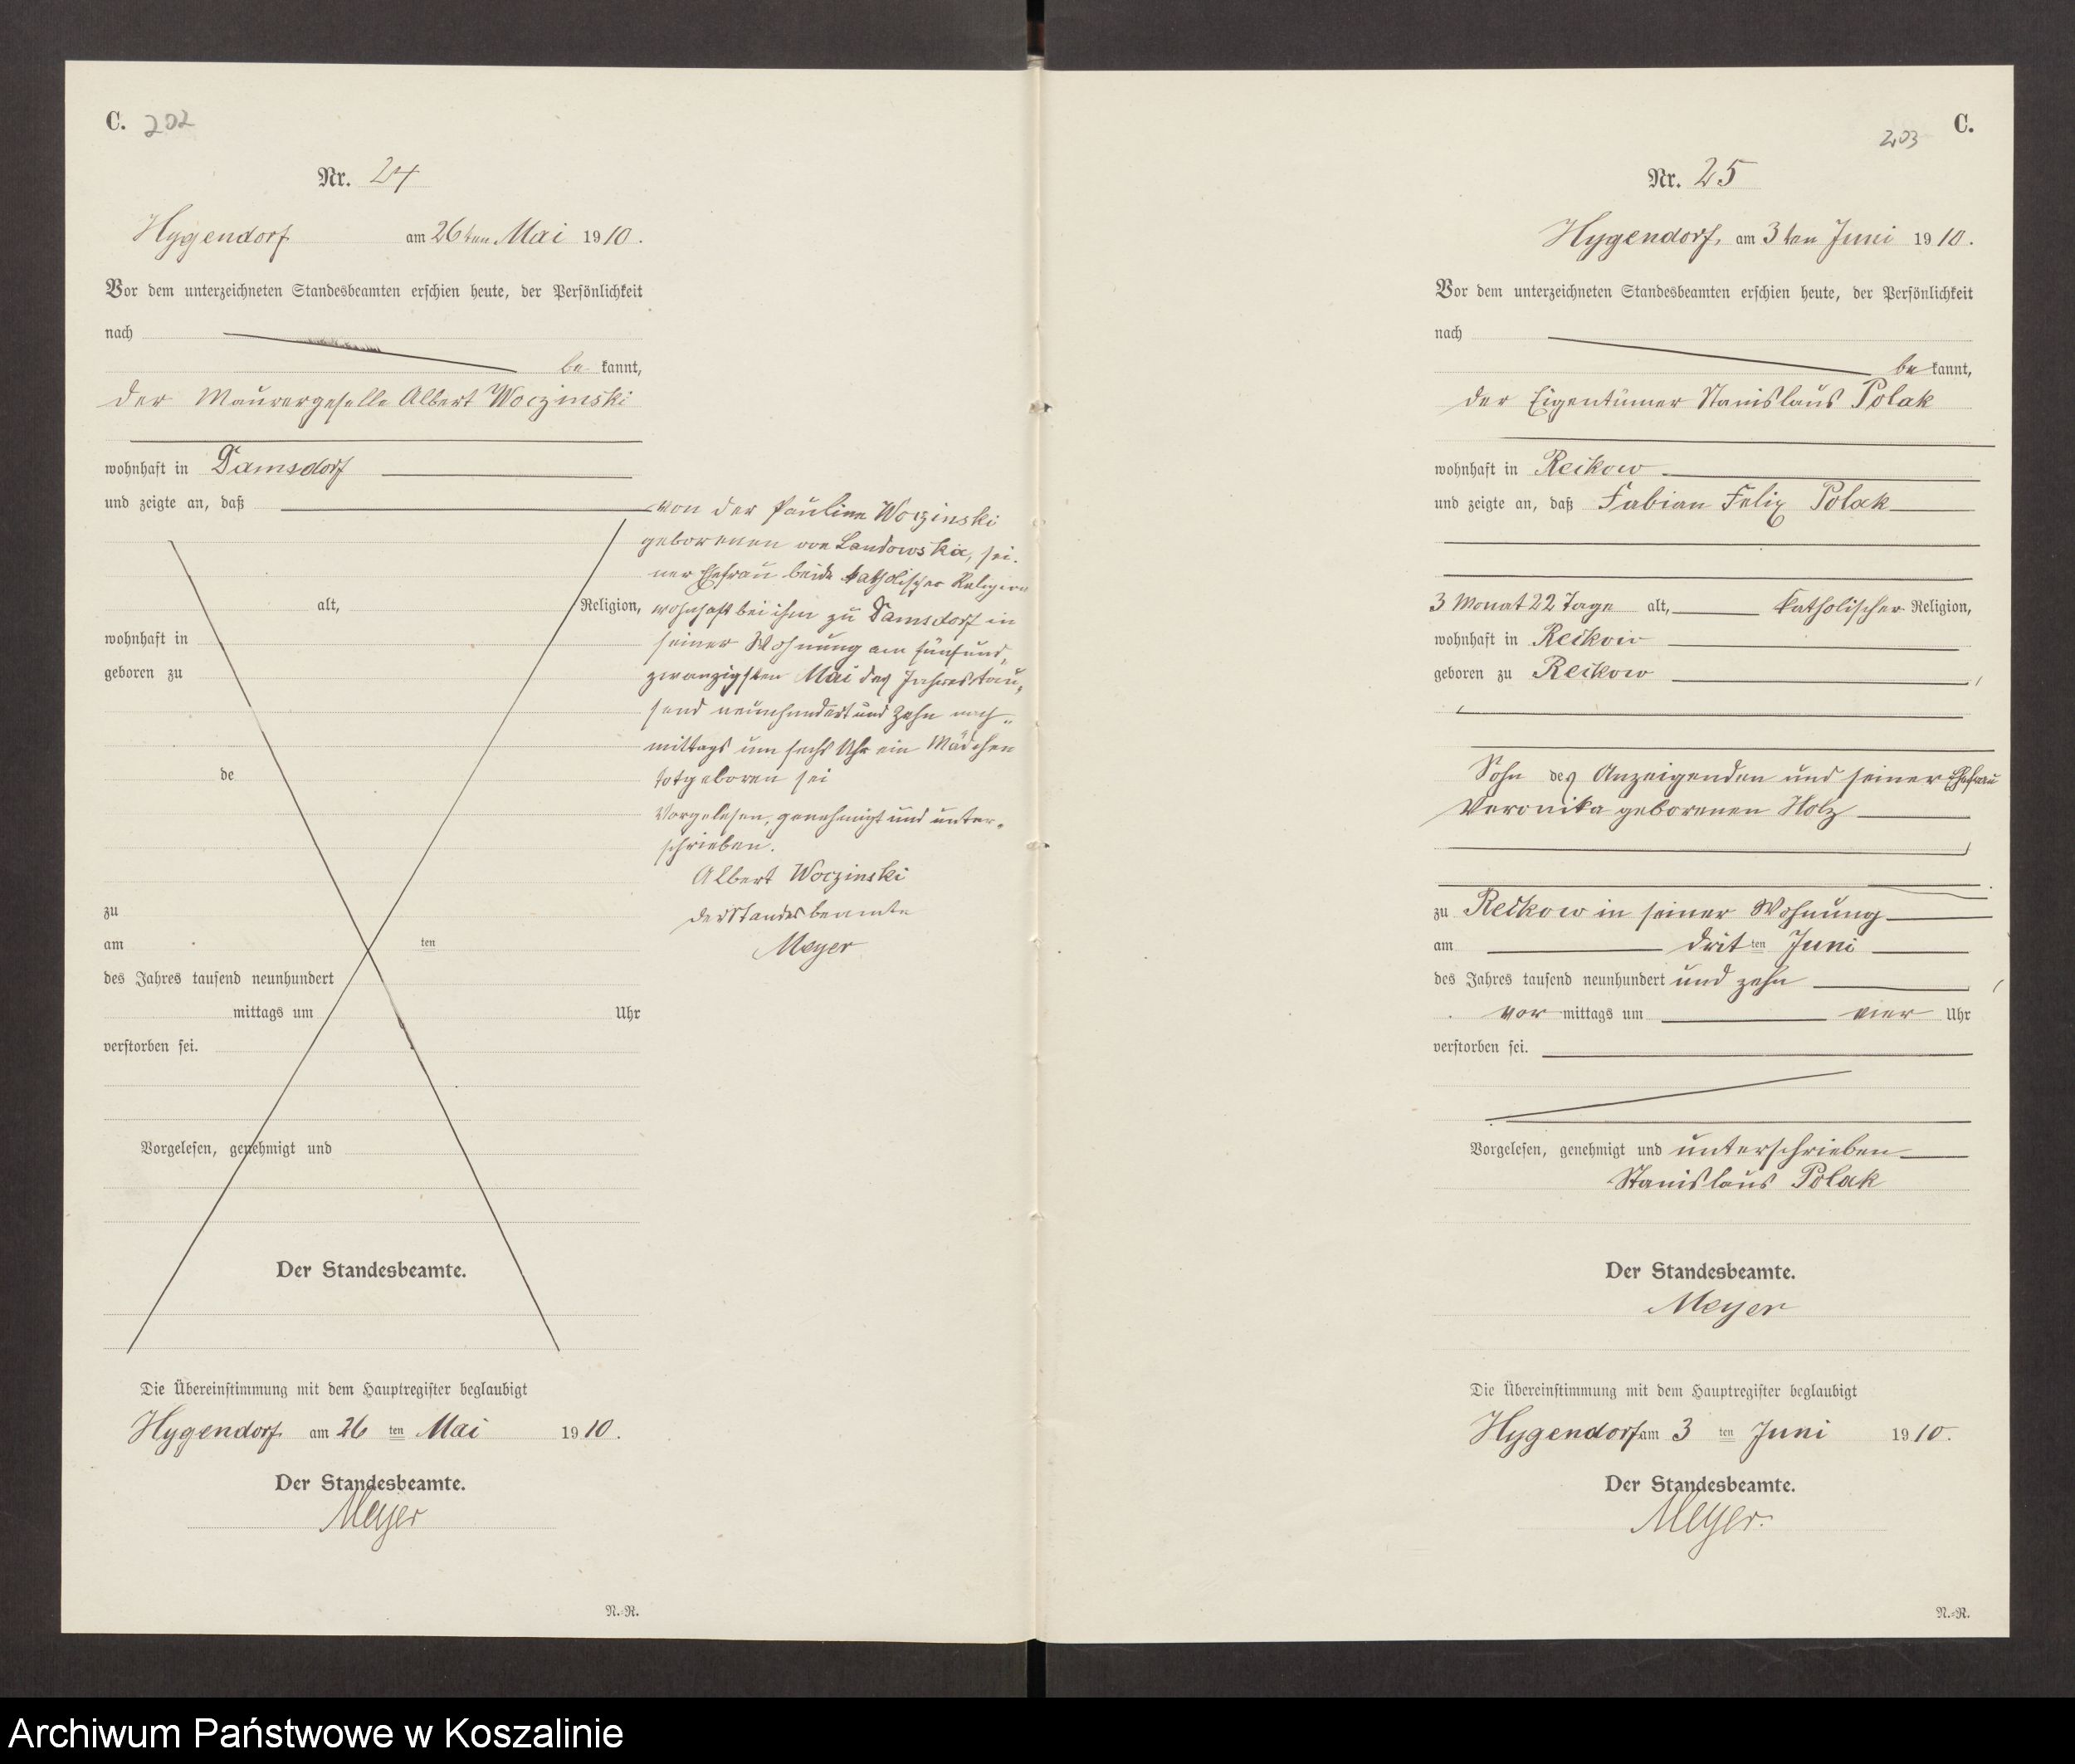 C. 202
Nr. 24
Hygendorf am 26ten Mai 1910.
Vor dem unterzeichneten Standesbeamten erschien heute, der Persönlichkeit
nach
be kannt,
der Maurergeselle Albert Woczinski
wohnhaft in Damsdorf
und zeigte an, daß
alt, Religion,
wohnhaft in
geboren zu
de
zu
am ten
des Jahres tausend neunhundert
mittags um Uhr
verstorben sei.
Vorgelesen, genehmigt und
Der Standesbeamte.
Die Übereinstimmung mit dem Hauptregister beglaubigt
Hygendorf am 26 ten Mai 1910.
Der Standesbeamte.
Meyer
N.-R.
von der Pauline Woczinski
geborenen von Landowska, sei-
ner Ehefrau beide katholischer Religion
wohnhaft bei ihm zu Damsdorf in
seiner Wohnung am fünfund-
zwanzigsten Mai des Jahres tau-
send neunhundert und zehn nach-
mittags um sechs Uhr ein Mädchen
totgeboren sei
Vorgelesen, genehmigt und unter-
schrieben.
Albert Woczinski
der Standesbeamte
Meyer
C.
203
Nr. 25
Hygendorf, am 3ten Juni 1910.
Vor dem unterzeichneten Standesbeamten erschien heute, der Persönlichkeit
nach
be kannt,
der Eigentümer Stanislaus Polak
wohnhaft in Reckow
und zeigte an, daß Fabian Felix Polak
3 Monat 22 Tage alt, katholischer Religion,
wohnhaft in Reckow
geboren zu Reckow
Sohn des Anzeigenden und seiner Ehefrau
Veronika geborenen Holz
zu Reckow in seiner Wohnung
am dritten Juni
des Jahres tausend neunhundert und zehn
vor mittags um vier Uhr
verstorben sei.
Vorgelesen, genehmigt und unterschrieben
Stanislaus Polak
Der Standesbeamte.
Meyer
Die Übereinstimmung mit dem Hauptregister beglaubigt
Hygendorf am 3 ten Juni 1910.
Der Standesbeamte.
Meyer.
N.-R.
Archiwum Państwowe w Koszalinie